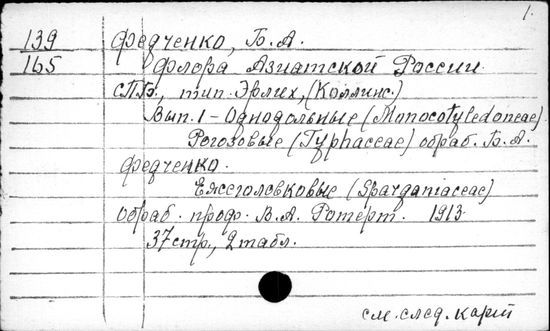 1.
139 Федченко, Б.А.
165 Флора Азиатской России
СПБ., тип. Эрлих, (Коллинс.)
Вып. 1 - Однодольные (Monocotyledoneae)
Рогозовые (Typhaceae) обраб. Б.А.
Федченко.
Ежеголовковые (Sparganiaceae)
обраб. проф. В.А. Ротерт. 1913
37 стр., 2 табл.
см. след. карт